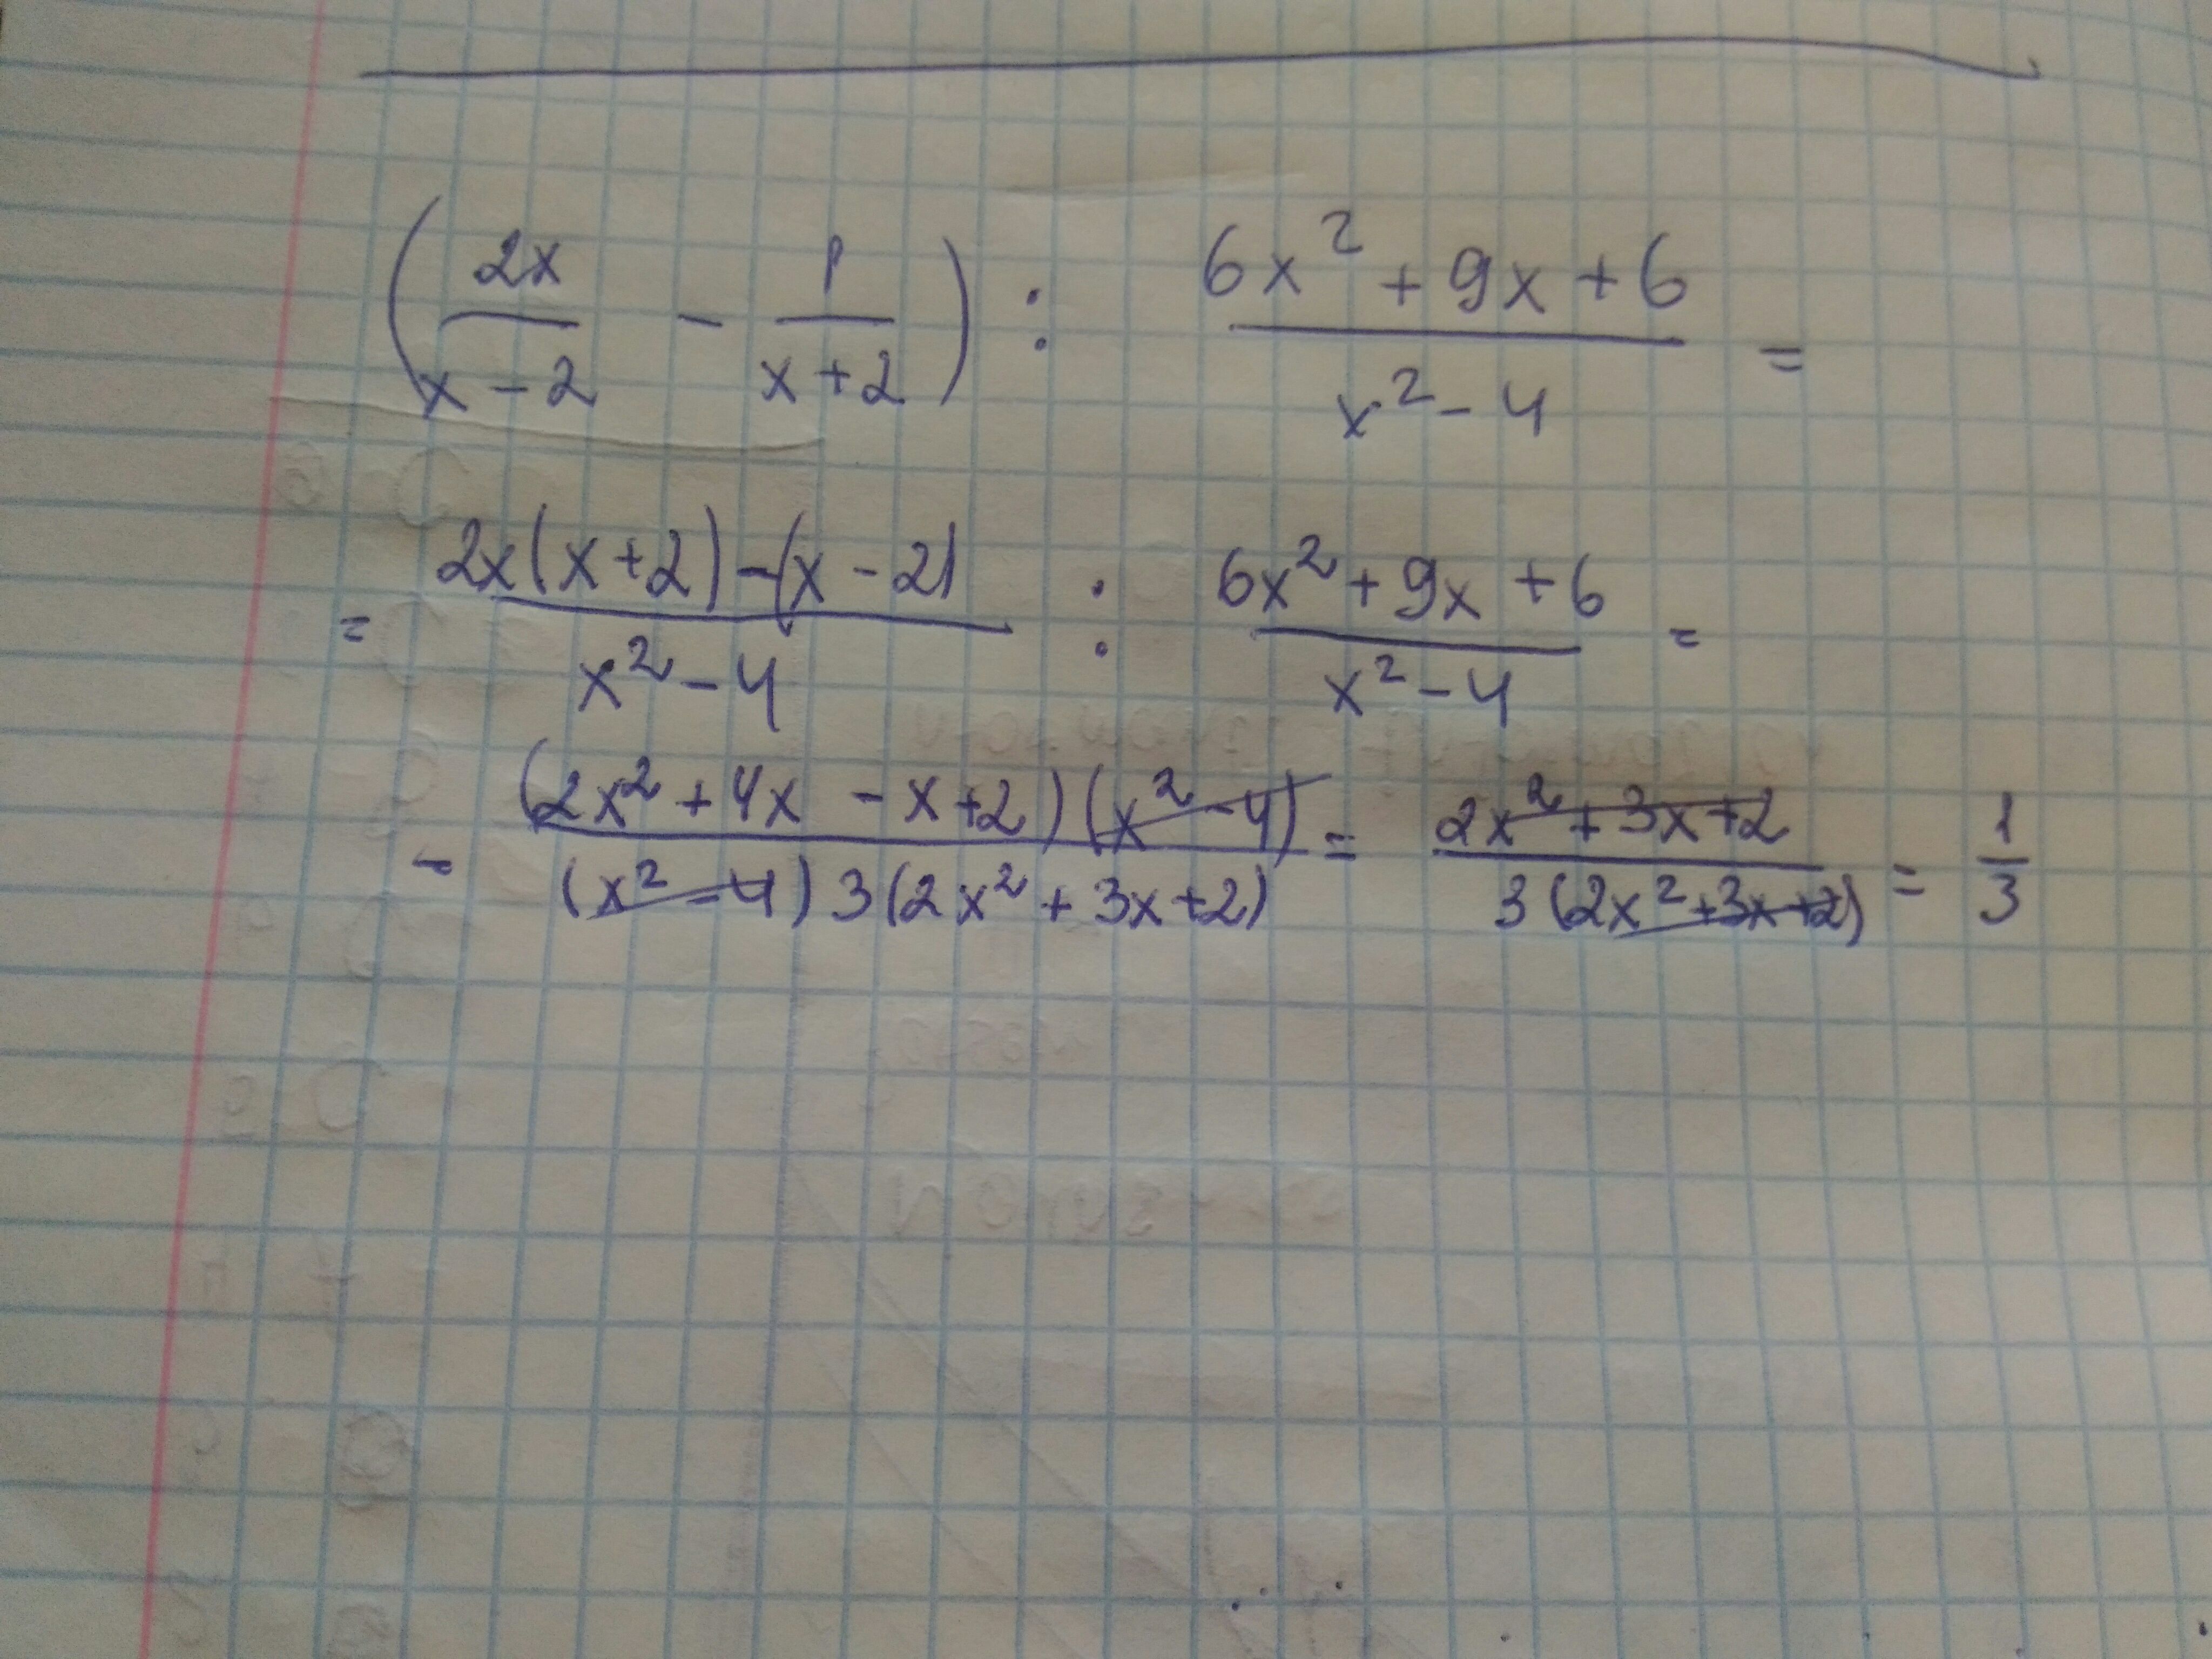 (2x/(x-2) - 1/(x+2)) : (6x²+9x+6)/(x²-4) =
= (2x(x+2)-(x-2))/(x²-4) : (6x²+9x+6)/(x²-4) =
= ((2x²+4x-x+2)(x²-4))/((x²-4)3(2x²+3x+2)) = (2x²+3x+2)/(3(2x²+3x+2)) = 1/3